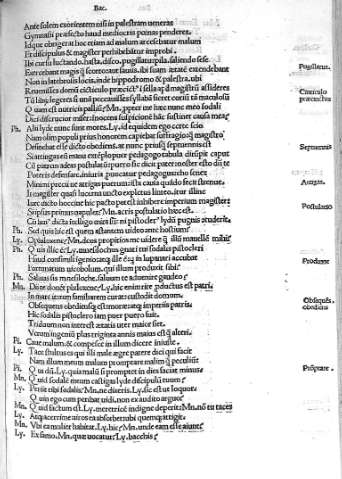 Bac.
Ante solem exorientem nisi in palestram ueneras
Gymnasii præfecto haud mediocris poenas penderes.
Idque obtigerat hoc etiam ad malum arcessebatur malum
Et discipulus & magister perhibebantur improbi.
Ibi cursu luctando, hasta, disco, pugillatu pila, saliendo sese
Pugillatus.
Exercebant magis quam scortando sauiis. ibi suam ætatem extendebant
Non in latebrosis locis. inde hippodromo & palestra, ubi
Reuenisses domum cincticulo præcinctus i sella apud magistrum assideres
Cincticulo præcinctus
Cum librum legeres si unam peccauisses syllabam fieret corium tam maculosum
Quam est nutricis pallium. Mn. propter me hæc nunc meo sodali
Dici discrucior miser. innocens suspicionem hanc sustinet causa mea
Ph. Alii lyde nunc sunt mores. Ly. id quidem ego certo scio
Nam olim populi prius honorem capiebat suffragio quam magistro
Desinebat esse dicto obediens. at nunc prius quam septuennis est
Septuennis
Si attingas eum manu extemplo puer pedagogo tabula dirumpit caput
Cum patrem adeas postulatum puero sic dicit pater noster esto dum te
Poteris defensare. iniuria prouocatur pedagogus eho senex
Minimi preci ne attigas puerum istac causa quando fecit strenue.
Attigas.
It magister quasi lucerna uncto expletus linteo. itur illinc
Iure dicto hoccine hic pacto potest inhibere imperium magister
Si ipsus primus uapulet Mn. acris postulatio hæc est.
Postulatio
Ph. Sed quis hic est quem astantem uideo ante hostium
Ly.
Ph. Quis illic est Ly. mnesilochus gnati tui sodalis pistocleri
Haud consimili ingenio atque ille est qui in lupanari accubat
Fortunatum nicobolum. qui illum produxit sibi
Ph. Saluus sis mnesiloche. saluum te aduenire gaudeo
Mn. Dii te ament philoxene Ly. hic enim rite productus est patri.
In mare it rem familiarem curat custodit domum.
Obsequens obediensque est mori atque imperiis patris.
Obsequens obediens
Hic sodalis pistoclero iam puer puero fuit.
Triduum non interest ætatis uter maior siet.
Verum ingenium plus triginta annis maius est quam alteri.
Pi. Caue malum & compesce in illum dicere iniuste.
Ly. Tace stultus es qui illi male ægre patere dici qui facit
Nam illum meum malum promptare malim quam peculium
Pi. Quidum Ly. quia malum si promptet in dies faciat minus
Promptare.
Mn. Quid sodalem meum castigas lyde discipulum tuum
Ly. Periit tibi sodalis Mn. ne di sierint Ly. sic est ut loquor.
Quin ego cum peribat uidi. non ex audito arguo
Mn. Quid factum est Ly. meretricem indigne deperit Mn. non tu taces
Ly. Atque acerrime æstuosam absorbet ubi quemque attigit.
Mn. Vbi ea mulier habitat Ly. hic Mn. unde eam esse aiunt
Ly. Ex samo. Mn. quæ uocatur Ly. bacchis